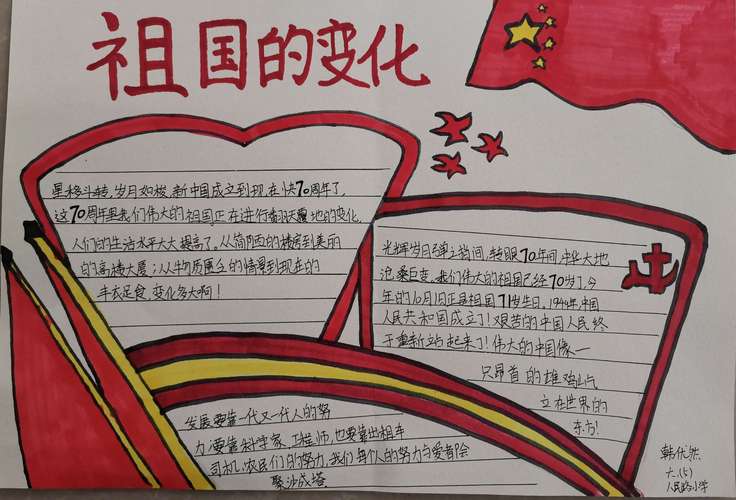 祖国的变化
星移斗转,岁月如梭,新中国成立到现在快70周年了,
这70周年里我们伟大的祖国正在进行着翻天覆地的变化,
人们的生活水平大大提高了。从简陋的楼房到美丽
的高楼大厦;从物质匮乏的情景到现在的
丰衣足食,变化多大啊!
光辉岁月弹之指间,转眼70年间,中华大地
沧桑巨变。我们伟大的祖国已经70岁了,今
年的10月1日正是祖国71岁生日。1949年,中国
人民共和国成立了!艰苦的中国人民终
于重新站起来了!伟大的中国像一
只昂首的雄鸡屹
立在世界的
东方!
发展要靠一代又一代人的努
力,要靠科学家、工程师,也要靠出租车
司机、农民们的努力,我们每个人的努力与爱都会
聚沙成塔.
韩
六.(5)
人民路小学